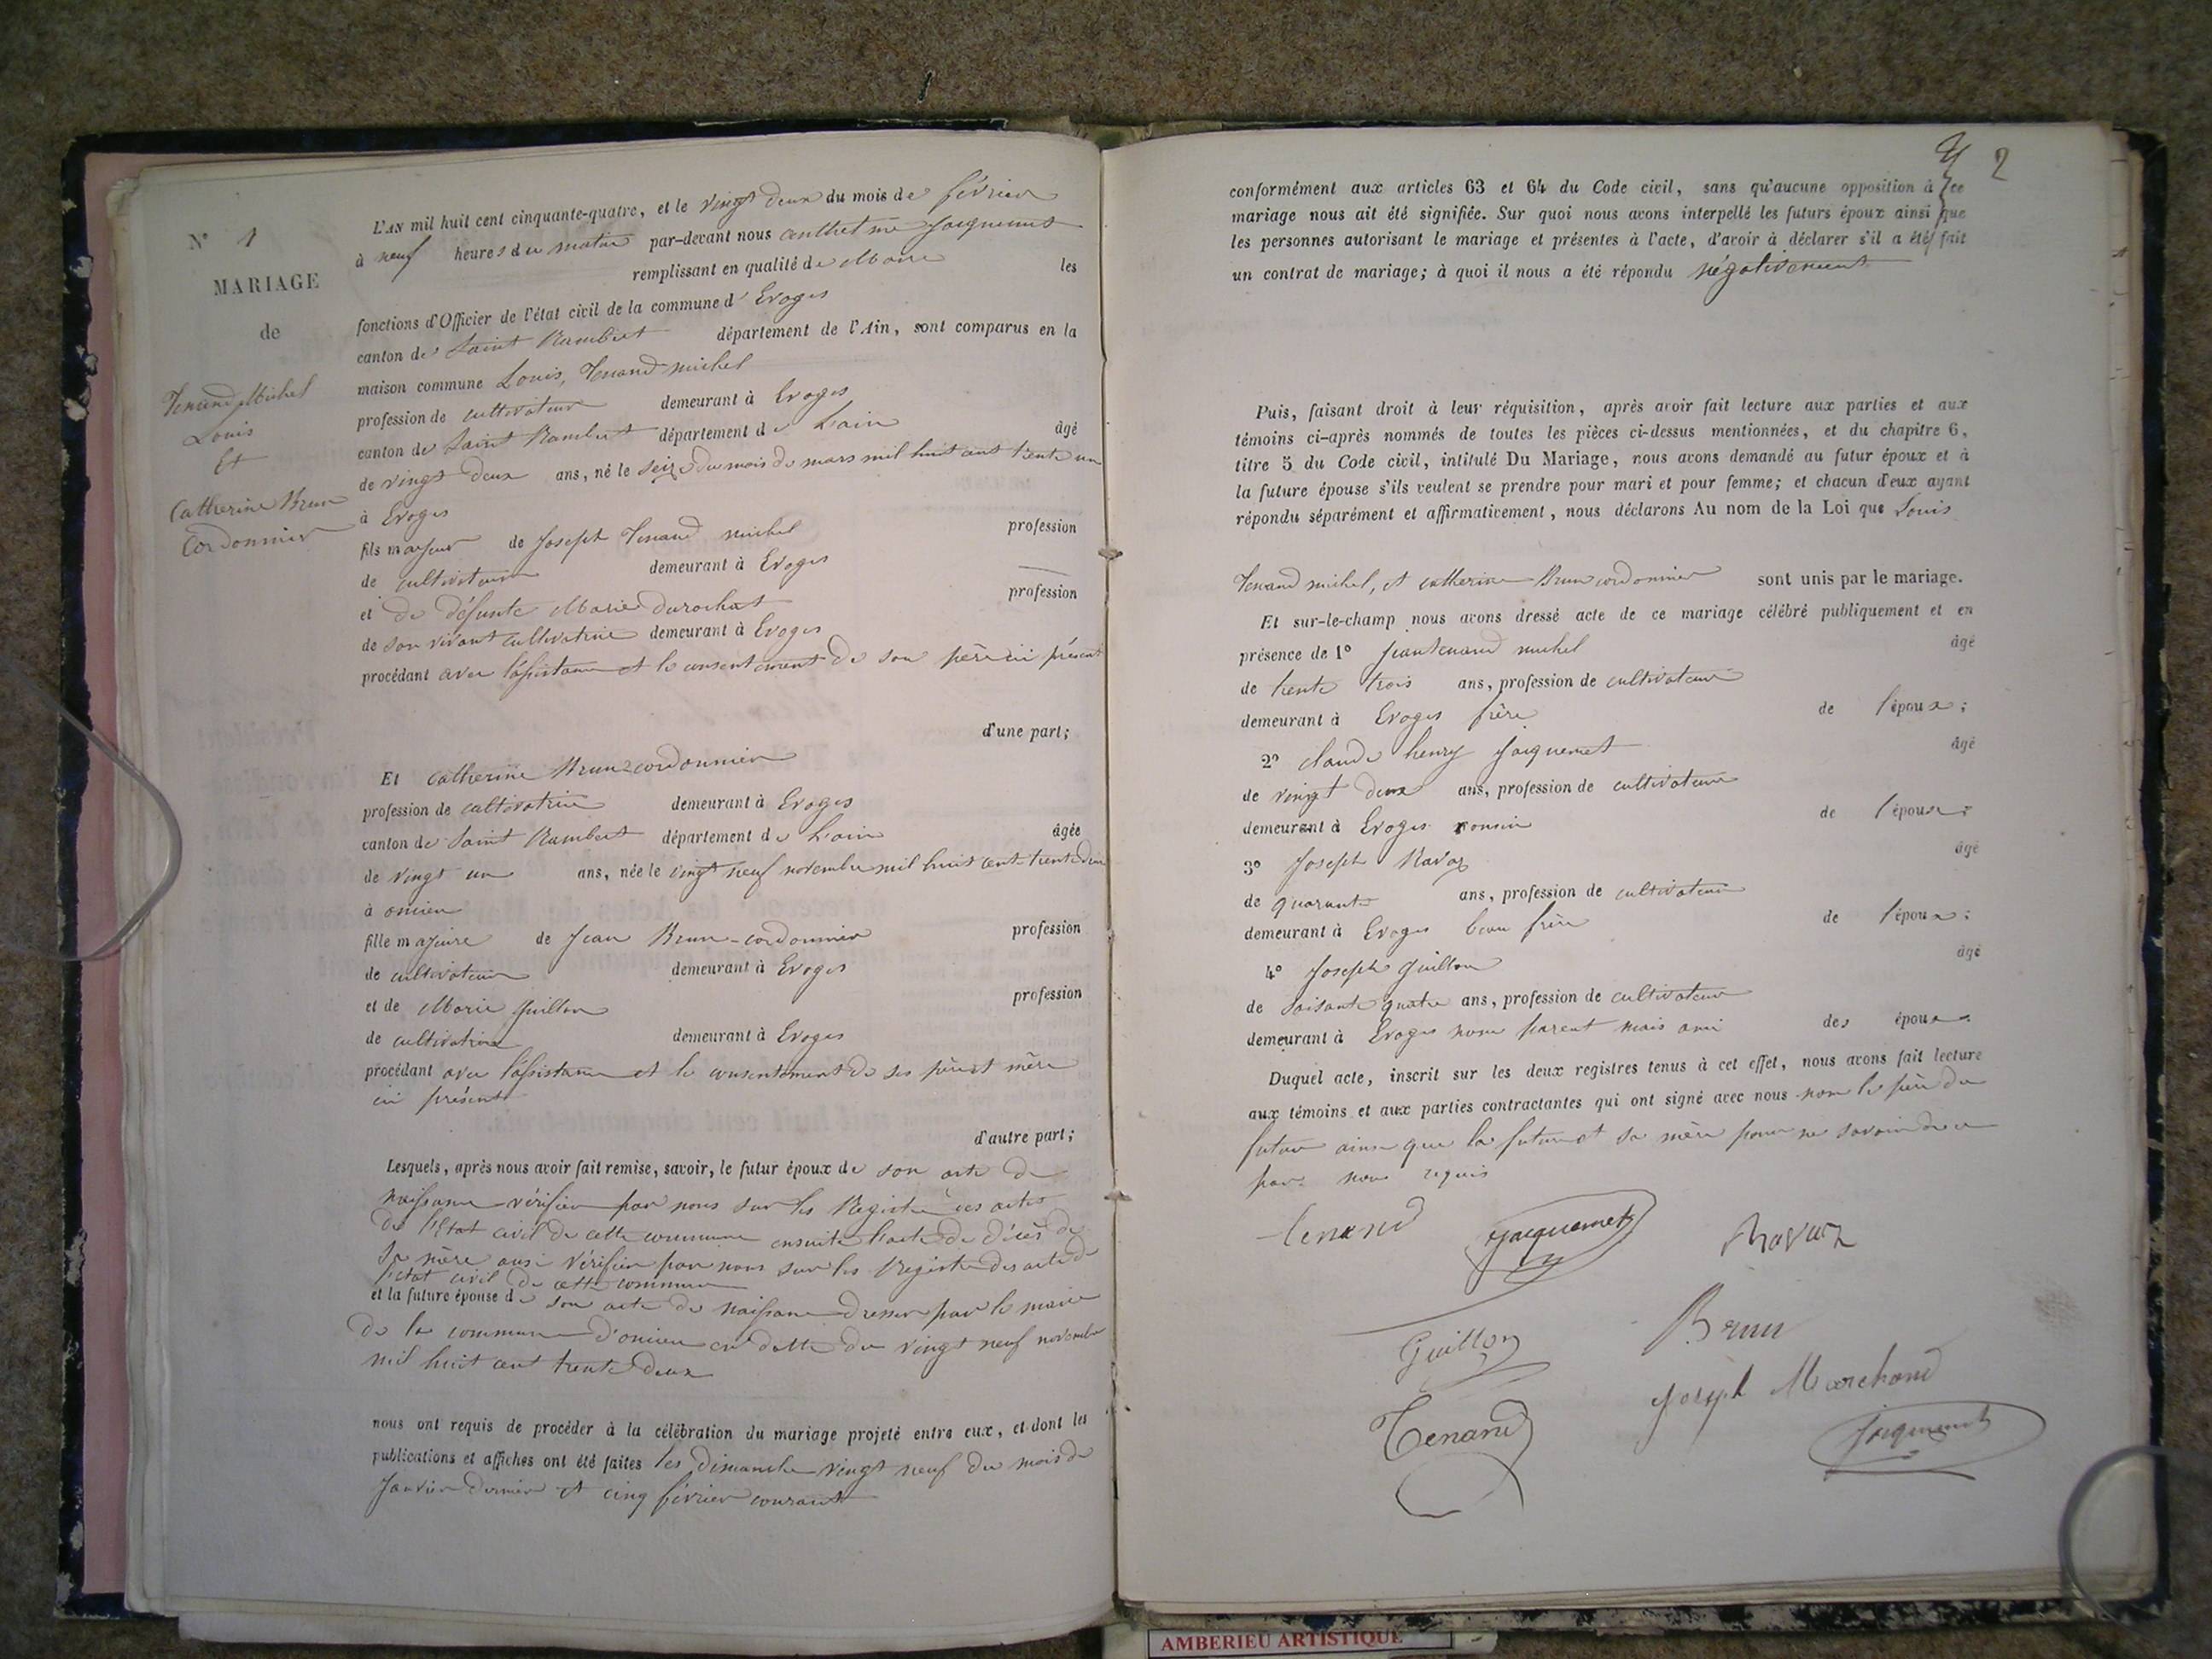 N° 1
MARIAGE
de
Tenand Michel
Louis
Et
Catherine Brun
Cordonnier
L'AN mil huit cent cinquante-quatre, et le vingt deux du mois de février
à neuf heures du matin par-devant nous anthelme Jacquemet
remplissant en qualité de Maire les
fonctions d'Officier de l'état civil de la commune d'Evoges
canton de Saint Rambert département de l'Ain, sont comparus en la
maison commune Louis, Tenand michel
profession de cultivateur demeurant à Evoges
canton de Saint Rambert département de L'ain âgé
de vingt deux ans, né le seize du mois de mars mil huit cent trente un
à Evoges
fils majeur de Joseph Tenand michel profession
de cultivateur demeurant à Evoges
et de défunte Marie Durochat profession
de son vivant cultivatrice demeurant à Evoges
procédant avec l'assistance et le consentement de son père ici présent
d'une part;
Et Catherine Brun-cordonnier
profession de cultivatrice demeurant à Evoges
canton de Saint Rambert département de L'ain âgée
de vingt un ans, née le vingt neuf novembre mil huit cent trente deux
à oncieu
fille majeure de Jean Brun-cordonnier profession
de cultivateur demeurant à Evoges
et de Marie Guillon profession
de cultivatrice demeurant à Evoges
procédant avec l'assistance et le consentement de ses père et mère
ici présents
d'autre part;
Lesquels, après nous avoir fait remise, savoir, le futur époux de son acte de
naissance vérifier par nous sur les Registre des actes
de l'Etat civil de cette commune ensuite l'acte de décès de
sa mère ausi vérifier par nous sur les Registre des acte de
l'état civil de cette commune
et la future épouse de son acte de naissance dresser par le maire
de la commune d'oncieu en datte du vingt neuf novembre
mil huit cent trente deux
nous ont requis de procéder à la célébration du mariage projeté entre eux, et dont les
publications et affiches ont été faites les dimanche vingt neuf du mois de
Janvier dernier et cinq février courant
2
conformément aux articles 63 et 64 du Code civil, sans qu'aucune opposition à ce
mariage nous ait été signifiée. Sur quoi nous avons interpellé les futurs époux ainsi que
les personnes autorisant le mariage et présentes à l'acte, d'avoir à déclarer s'il a été fait
un contrat de mariage; à quoi il nous a été répondu négativement
Puis, faisant droit à leur réquisition, après avoir fait lecture aux parties et aux
témoins ci-après nommés de toutes les pièces ci-dessus mentionnées, et du chapitre 6,
titre 5 du Code civil, intitulé Du Mariage, nous avons demandé au futur époux et à
la future épouse s'ils veulent se prendre pour mari et pour femme; et chacun d'eux ayant
répondu séparément et affirmativement, nous déclarons Au nom de la Loi que Louis
Tenand michel, et catherine Brun cordonnier sont unis par le mariage.
Et sur-le-champ nous avons dressé acte de ce mariage célébré publiquement et en
présence de 1° Jean tenand michel âgé
de trente trois ans, profession de cultivateur
demeurant à Evoges frère de l'époux;
2° claude henry Jacquemet âgé
de vingt deux ans, profession de cultivateur
demeurant à Evoges cousin de l'époux;
3° Joseph Ravaz âgé
de quarante ans, profession de cultivateur
demeurant à Evoges beau frère de l'époux;
4° Joseph Guillon âgé
de soisante quatre ans, profession de cultivateur
demeurant à Evoges non parent mais ami des époux.
Duquel acte, inscrit sur les deux registres tenus à cet effet, nous avons fait lecture
aux témoins et aux parties contractantes qui ont signé avec nous non le père du
futur ainsi que la future et sa mère pour ne savoir de ce
par nous requis
tenand
Jacquemet
Ravaz
Guillon
Brun
Joseph Marchand
Tenand
Jacquemet
AMBERIEU ARTISTIQUE